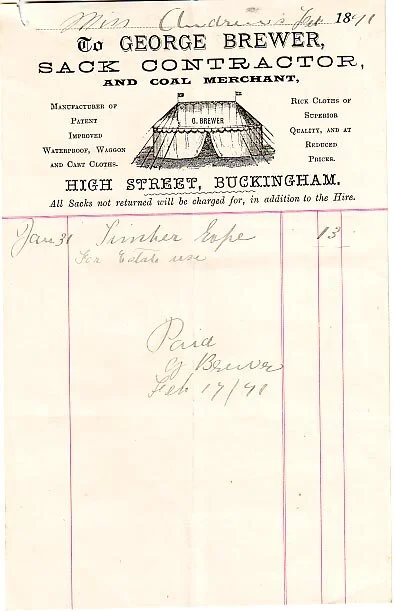 Miss Andrews Feb 1891
To GEORGE BREWER,
SACK CONTRACTOR,
AND COAL MERCHANT,
MANUFACTURER OF
PATENT
IMPROVED
WATERPROOF, WAGGON
AND CART CLOTHS.
G. BREWER
RICK CLOTHS OF
SUPERIOR
QUALITY, AND AT
REDUCED
PRICES.
HIGH STREET, BUCKINGHAM.
All Sacks not returned will be charged for, in addition to the Hire.
Jan 31 Timber Rope 13
For Estate use
Paid
G Brewer
Feb 17/91